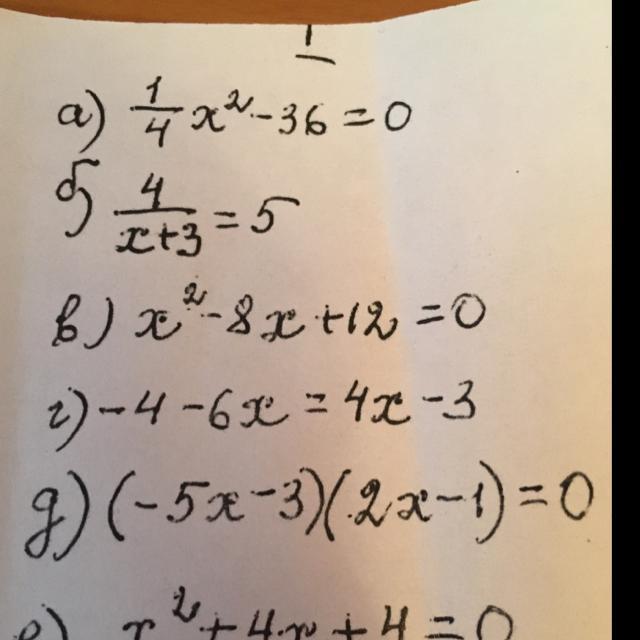 а) 1/4 x² - 36 = 0
б) 4/(x+3) = 5
в) x² - 8x + 12 = 0
г) -4 - 6x = 4x - 3
д) (-5x - 3)(2x - 1) = 0
е) x² + 4x + 4 = 0